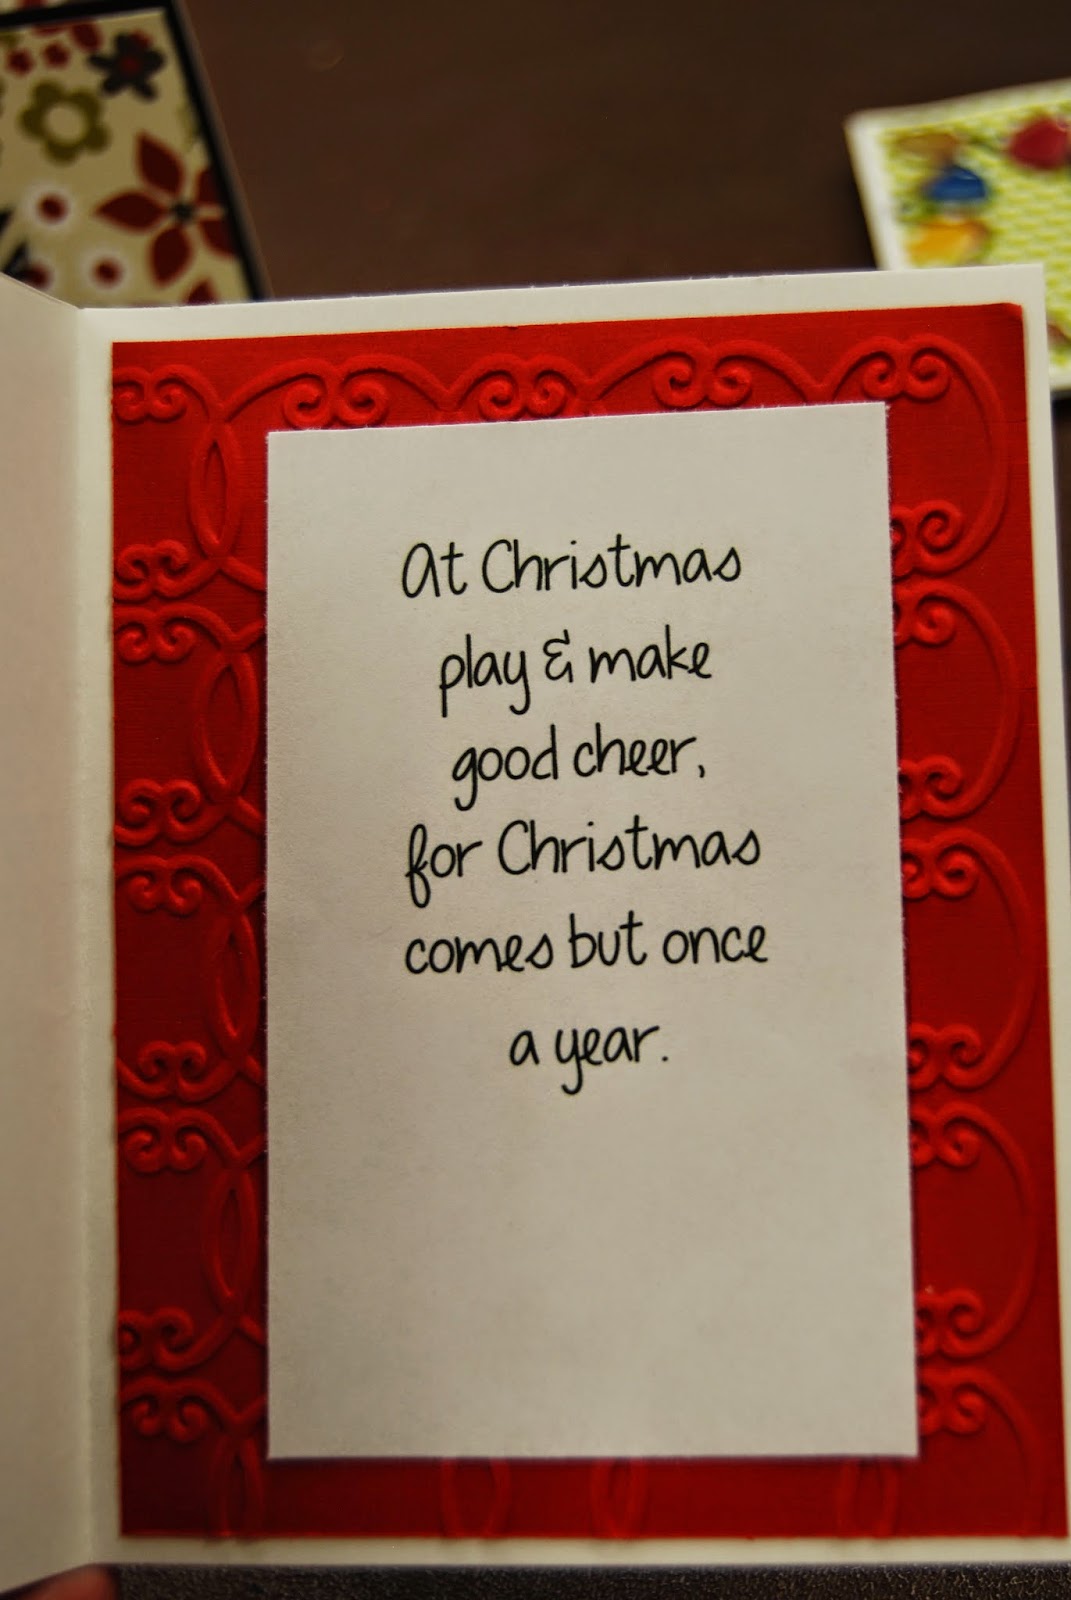 At Christmas
play & make
good cheer,
for Christmas
comes but once
a year.